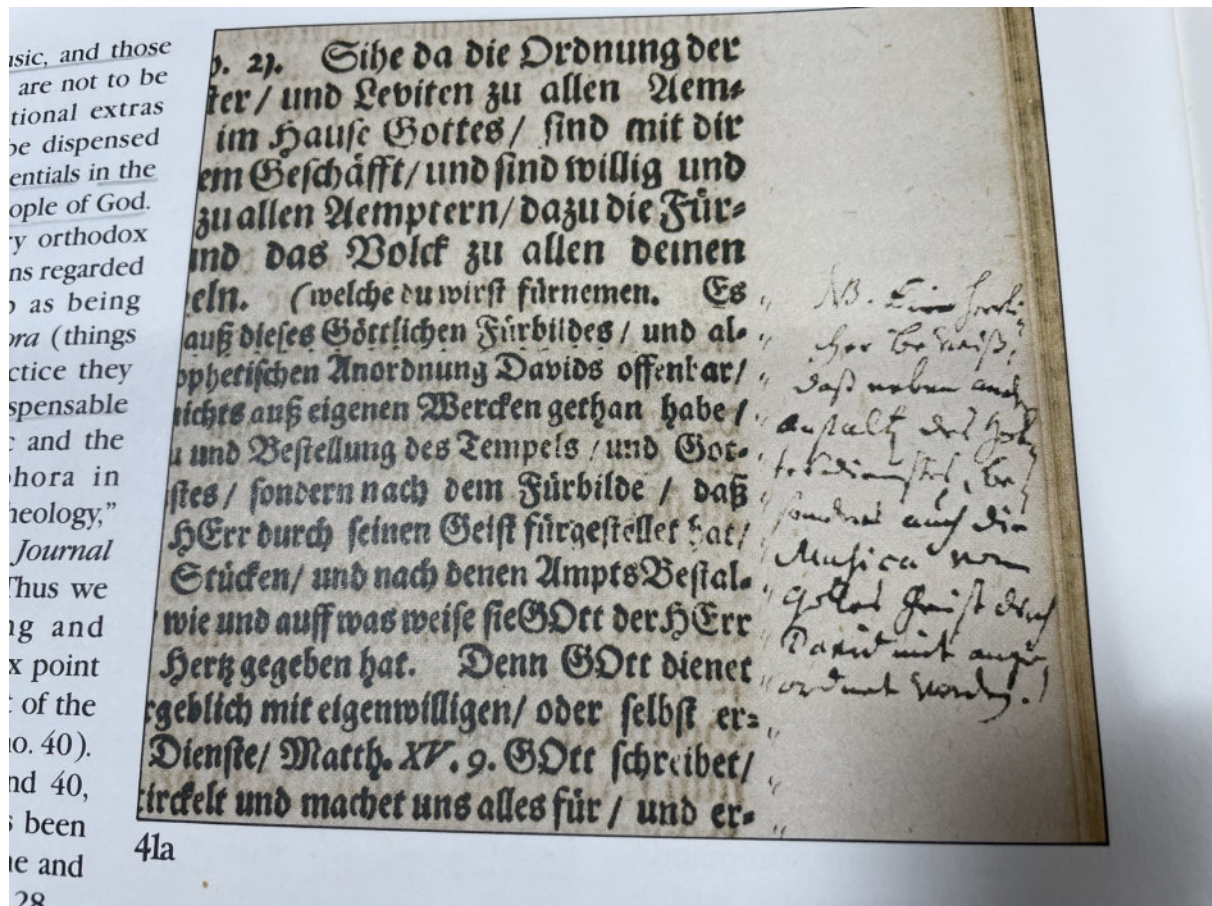 usic, and those
are not to be
tional extras
be dispensed
entials in the
ople of God.
ry orthodox
ns regarded
o as being
ora (things
ctice they
spensable
c and the
hora in
heology,"
Journal
Thus we
ng and
x point
t of the
no. 40).
nd 40,
s been
ne and
28
p. 21. Sihe da die Ordnung der
ster / und Leviten zu allen Aem⸗
im Hause Gottes / sind mit dir
em Geschäfft / und sind willig und
zu allen Aemptern / dazu die Für⸗
nd das Volck zu allen deinen
eln. (welche du wirst fürnemen. Es
auß dieses Göttlichen Fürbildes / und al⸗
ophetischen Anordnung Davids offenbar /
nichts auß eigenen Wercken gethan habe /
u und Bestellung des Tempels / und Got⸗
stes / sondern nach dem Fürbilde / daß
HErr durch seinen Geist fürgestellet hat /
Stücken / und nach denen AmptsBestal⸗
wie und auff was weise sie GOtt der HErr
Hertz gegeben hat. Denn GOtt dienet
rgeblich mit eigenwilligen / oder selbst er⸗
Dienste / Matth. XV. 9. GOtt schreibet /
irckelt und machet uns alles für / und er⸗
NB. Ein herrli⸗
cher Beweiß,
daß neben andern
Anstalten des Gottes⸗
dienstes, be⸗
sonders auch die
Musica von
Gottes Geist durch
David mit ange⸗
ordnet worden.
41a